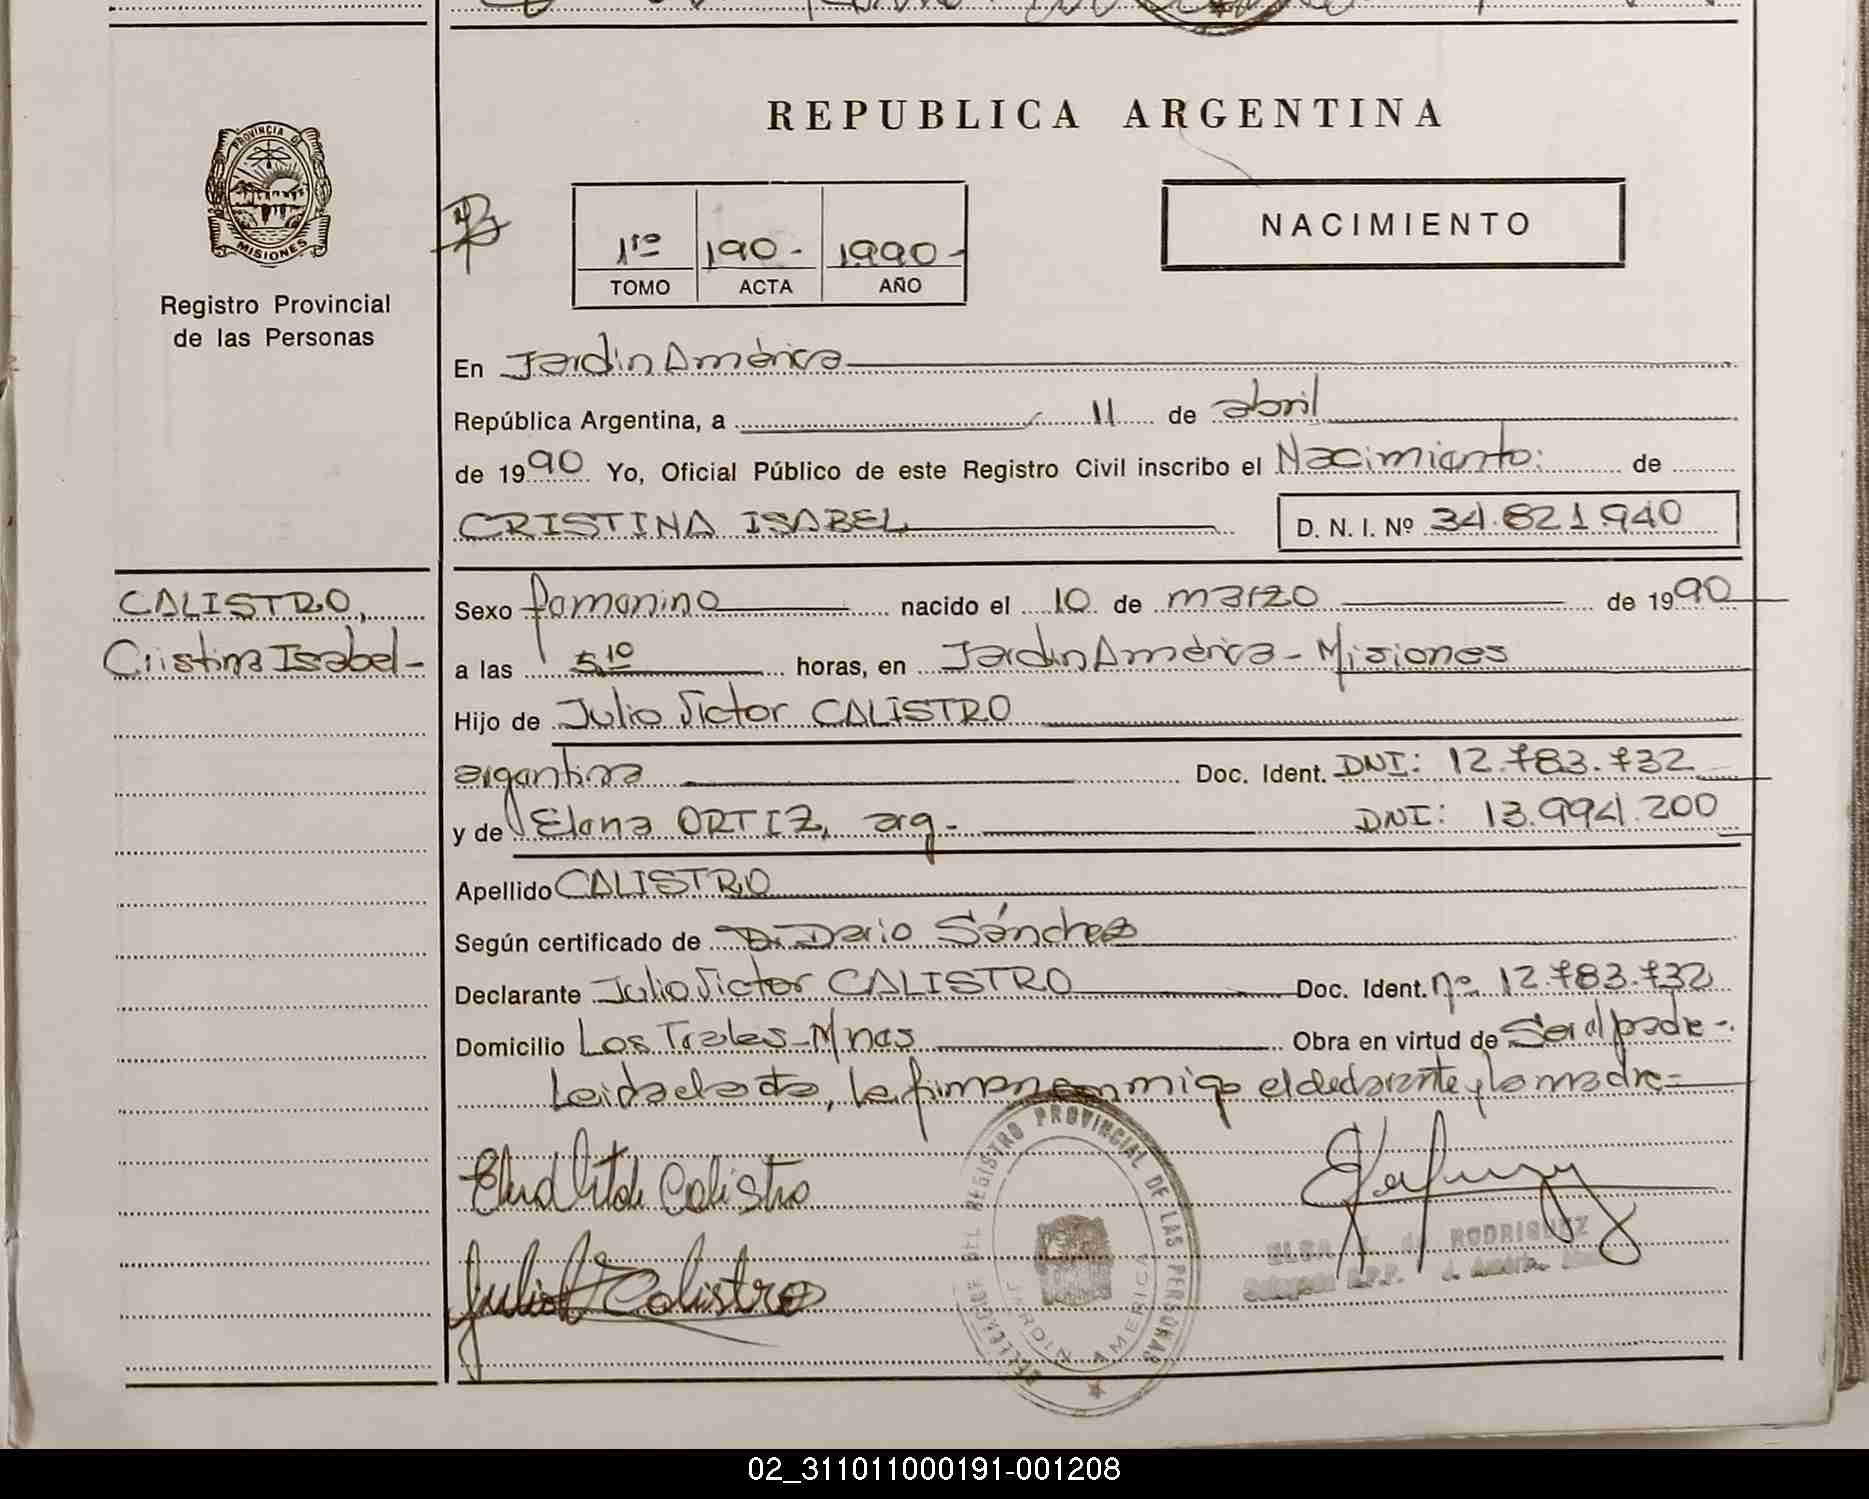 PROVINCIA DE
MISIONES
Registro Provincial
de las Personas
REPUBLICA ARGENTINA
1ro 190- 1990-
TOMO ACTA AÑO
NACIMIENTO
En Jardin América
República Argentina, a 11 de abril
de 1990 Yo, Oficial Público de este Registro Civil inscribo el Nacimiento: de
CRISTINA ISABEL D. N. I. Nº 34.821.940
CALISTRO,
Cristina Isabel-
Sexo femenino nacido el 10 de marzo de 1990
a las 5 10 horas, en Jardin América - Misiones
Hijo de Julio Victor CALISTRO
argentina Doc. Ident. DNI: 12.783.732
y de Elena ORTIZ, arg- DNI: 13.994.200
Apellido CALISTRO
Según certificado de Dr. Dario Sánchez
Declarante Julio Victor CALISTRO Doc. Ident. nº 12.783.732
Domicilio Los Teales - Mnes Obra en virtud de Ser el padre-.
Leida el acta, la firman conmigo el declarante y la madre-
Calistro
Julio Calistro
DEL REGISTRO PROVINCIAL DE LAS PERSONAS
JARDIN AMERICA
ELSA de RODRIGUEZ
02_311011000191-001208